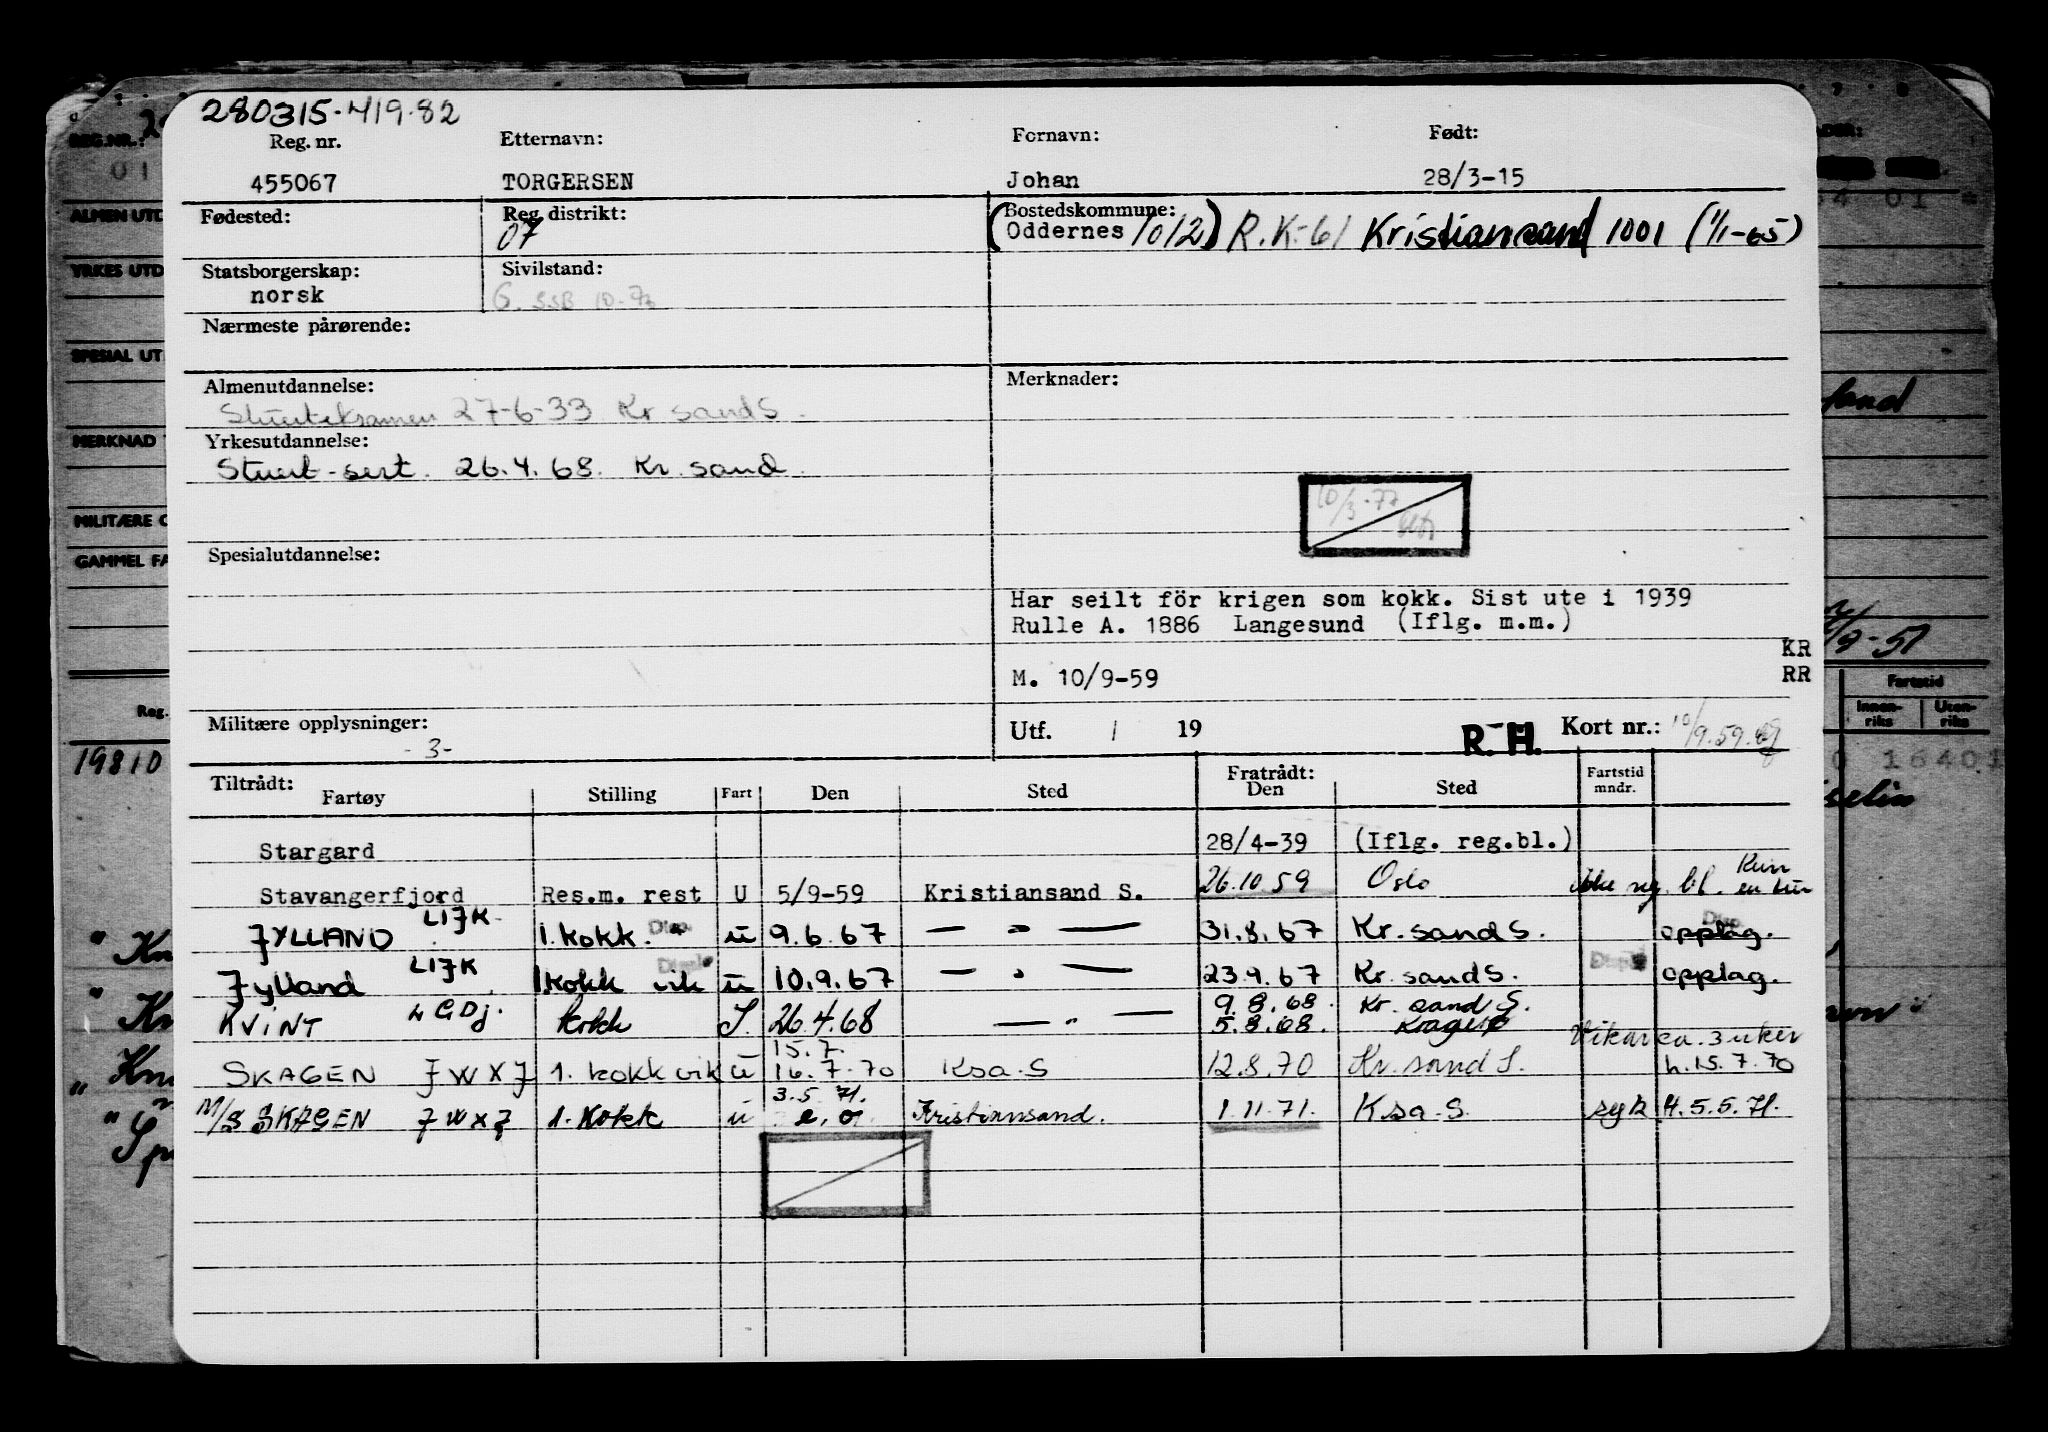 280315-419.82
Reg. nr. Etternavn: Fornavn: Født:
455067 TORGERSEN Johan 28/3-15
Fødested: Reg. distrikt: Bostedskommune:
07 (Oddernes 1012) R.K-61 Kristiansand 1001 (1/1-65)
Statsborgerskap: Sivilstand:
norsk G. SSB 10-73
Nærmeste pårørende:
Almenutdannelse: Merknader:
Stuerteksamen 27-6-33 Kr sand S.
Yrkesutdannelse:
Stuert-sert. 26.4.68. Kr. sand.
10/3-77
Spesialutdannelse:
Har seilt för krigen som kokk. Sist ute i 1939
Rulle A. 1886 Langesund (Iflg. m.m.)
KR
M. 10/9-59 RR
Militære opplysninger: Utf. / 19 R.H. Kort nr.: 10/9.59.
-3-
Tiltrådt: Fratrådt:
Fartøy Stilling Fart Den Sted Den Sted Fartstid mndr.
Stargard 28/4-39 (Iflg. reg.bl.)
Stavangerfjord Res.m. rest U 5/9-59 Kristiansand S. 26.10 59 Oslo ikke reg. bl. Kun en tur
JYLLAND LIJK 1. kokk. Disp. u 9.6.67 — " — 31.8.67 Kr. sand S. Disp. opplag.
Jylland LIJK 1. kokk vik u 10.9.67 — " — 23.9.67 Kr. sand S. opplag.
KVINT LGDj. kokk I. 26.4.68 — " — 9.8.68. Kr. sand S.
5.8.68. Kragerø
SKAGEN JWXJ 1. kokk vik u 15.7. 16.7.70 Ksa. S 12.8.70 Kr. sand S. Vikar ca. 3 uker h. 15.7.70
M/S SKAGEN JWXJ 1. Kokk u 3.5.71. e.o. Kristiansand. 1.11.71. Ksa. S. syk H. 5.5.71.
REG.NR.:
01
ALMEN UTD
YRKES UTD
SPESIAL UT
MERKNAD
MILITÆRE O
GAMMEL FA
Reg.
19810
Fartstid
Innen-riks Uten-riks
16401